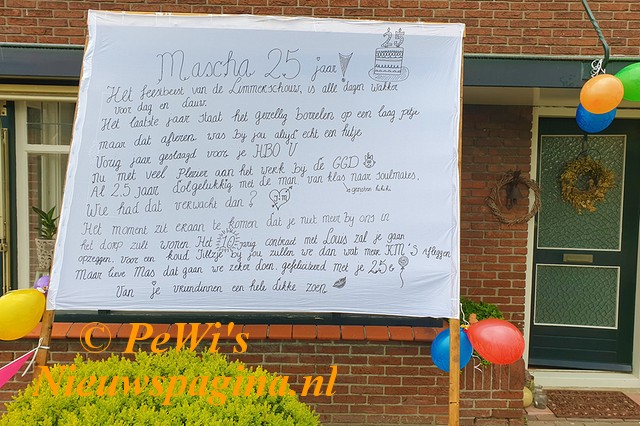 25
Mascha 25 jaar!
Het feestbeest van de Limmerschouw, is alle dagen wakker
voor dag en dauw.
Het laatste jaar staat het gezellig borrelen op een laag pitje
maar dat afteren was bij jou altijd echt een hitje
Vorig jaar geslaagd voor je HBO V
Nu met veel plezier aan het werk bij de GGD
Al 2.5 jaar dolgelukkig met de man van klas naar soulmates.
Wie had dat verwacht dan?
Het moment zit eraan te komen dat je niet meer bij ons in
het dorp zult wonen. Het 10 jarig contract met Louis zal je gaan
opzeggen. Voor een koud Tilletje bij jou zullen we dan wat meer KM'S afleggen
Maar lieve Mas dat gaan we zeker doen. gefeliciteerd met je 25e
Van je vriendinnen een hele dikke zoen
© PeWi's
Nieuwspagina.nl